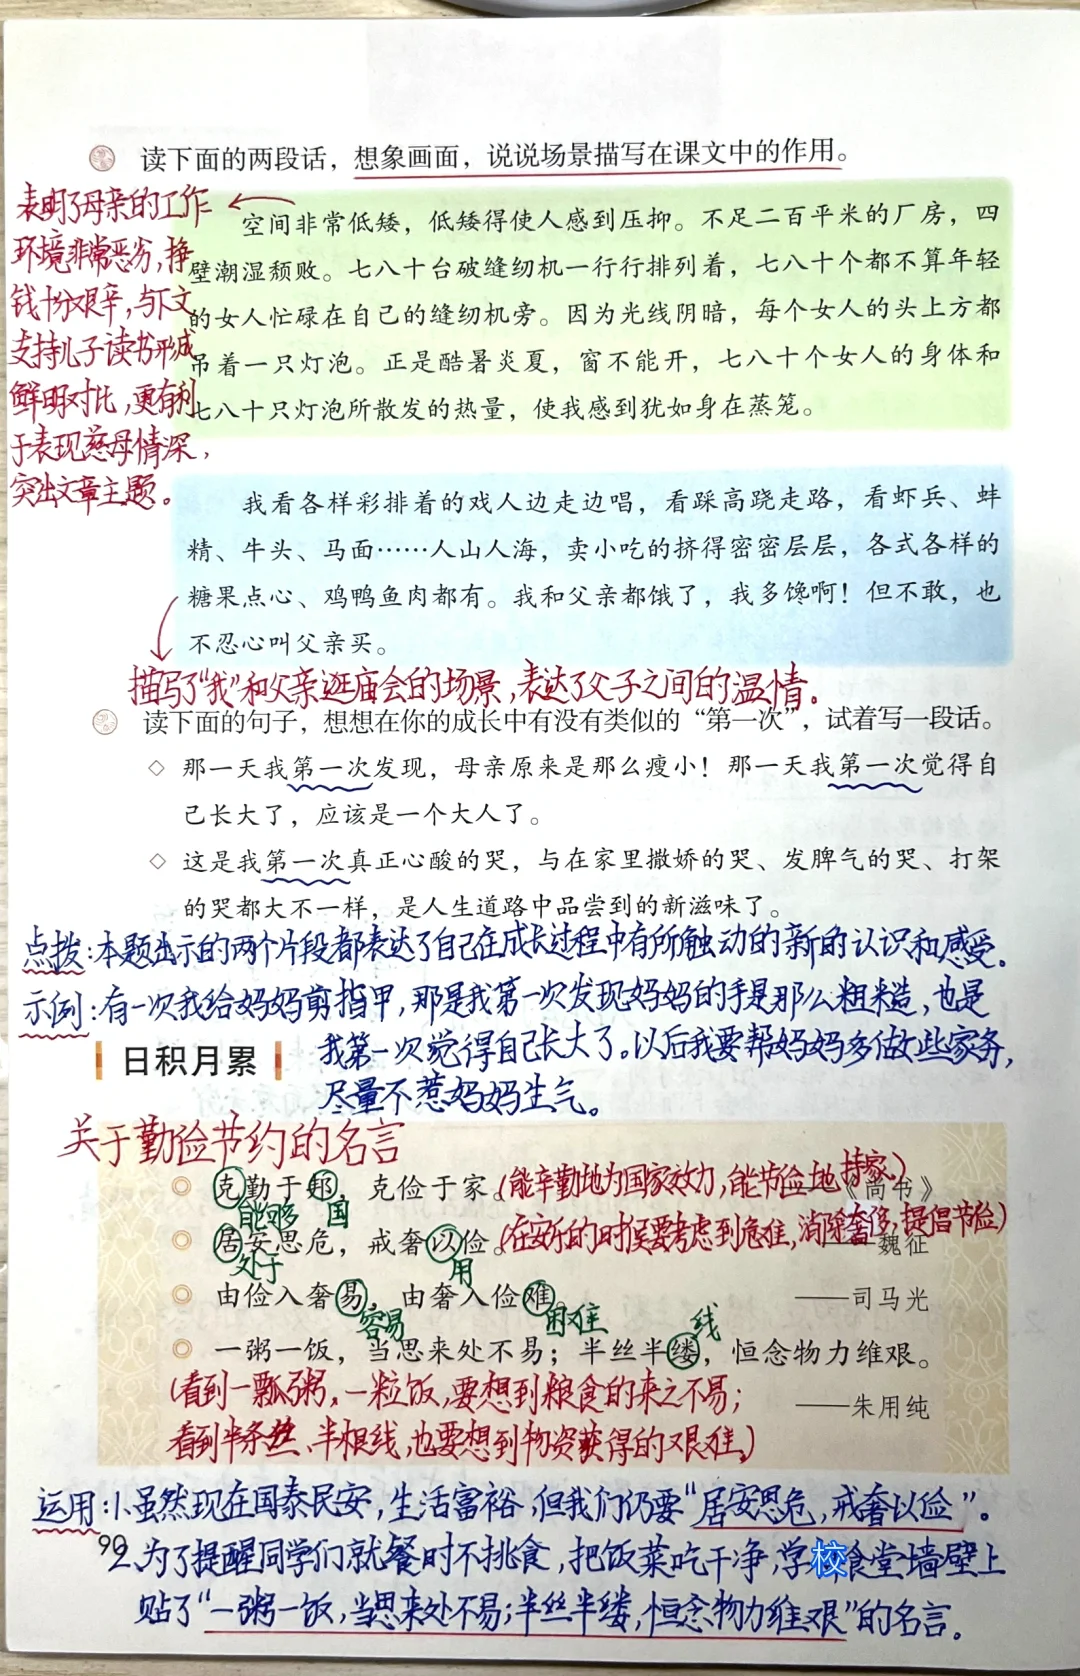 读下面的两段话，想象画面，说说场景描写在课文中的作用。
表明了母亲的工作
环境非常恶劣，挣
钱十分艰辛，与下文
支持儿子读书形成
鲜明对比，更有利
于表现慈母情深，
突出文章主题。
空间非常低矮，低矮得使人感到压抑。不足二百平米的厂房，四
壁潮湿颓败。七八十台破缝纫机一行行排列着，七八十个都不算年轻
的女人忙碌在自己的缝纫机旁。因为光线阴暗，每个女人的头上方都
吊着一只灯泡。正是酷暑炎夏，窗不能开，七八十个女人的身体和
七八十只灯泡所散发的热量，使我感到犹如身在蒸笼。
我看各样彩排着的戏人边走边唱，看踩高跷走路，看虾兵、蚌
精、牛头、马面……人山人海，卖小吃的挤得密密层层，各式各样的
糖果点心、鸡鸭鱼肉都有。我和父亲都饿了，我多馋啊！但不敢，也
不忍心叫父亲买。
描写了“我”和父亲逛庙会的场景，表达了父子之间的温情。
读下面的句子，想想在你的成长中有没有类似的“第一次”，试着写一段话。
◇ 那一天我第一次发现，母亲原来是那么瘦小！那一天我第一次觉得自
己长大了，应该是一个大人了。
◇ 这是我第一次真正心酸的哭，与在家里撒娇的哭、发脾气的哭、打架
的哭都大不一样，是人生道路中品尝到的新滋味了。
点拨：本题出示的两个片段都表达了自己在成长过程中有所触动的新的认识和感受。
示例：有一次我给妈妈剪指甲，那是我第一次发现妈妈的手是那么粗糙，也是
我第一次觉得自己长大了。以后我要帮妈妈多做些家务，
尽量不惹妈妈生气。
日积月累
关于勤俭节约的名言
克勤于邦，克俭于家。(能辛勤地为国家效力，能节俭地持家。)
——《尚书》
能够 国
居安思危，戒奢以俭。(在安乐的时候要考虑到危难，消除奢侈，提倡节俭)
——魏征
处于 用
由俭入奢易，由奢入俭难。 ——司马光
容易 困难 线
一粥一饭，当思来处不易；半丝半缕，恒念物力维艰。
——朱用纯
(看到一瓢粥，一粒饭，要想到粮食的来之不易；
看到半条丝、半根线，也要想到物资获得的艰难。)
运用：1.虽然现在国泰民安，生活富裕，但我们仍要“居安思危，戒奢以俭”。
90
2.为了提醒同学们就餐时不挑食，把饭菜吃干净，学校食堂墙壁上
贴了“一粥一饭，当思来处不易；半丝半缕，恒念物力维艰”的名言。